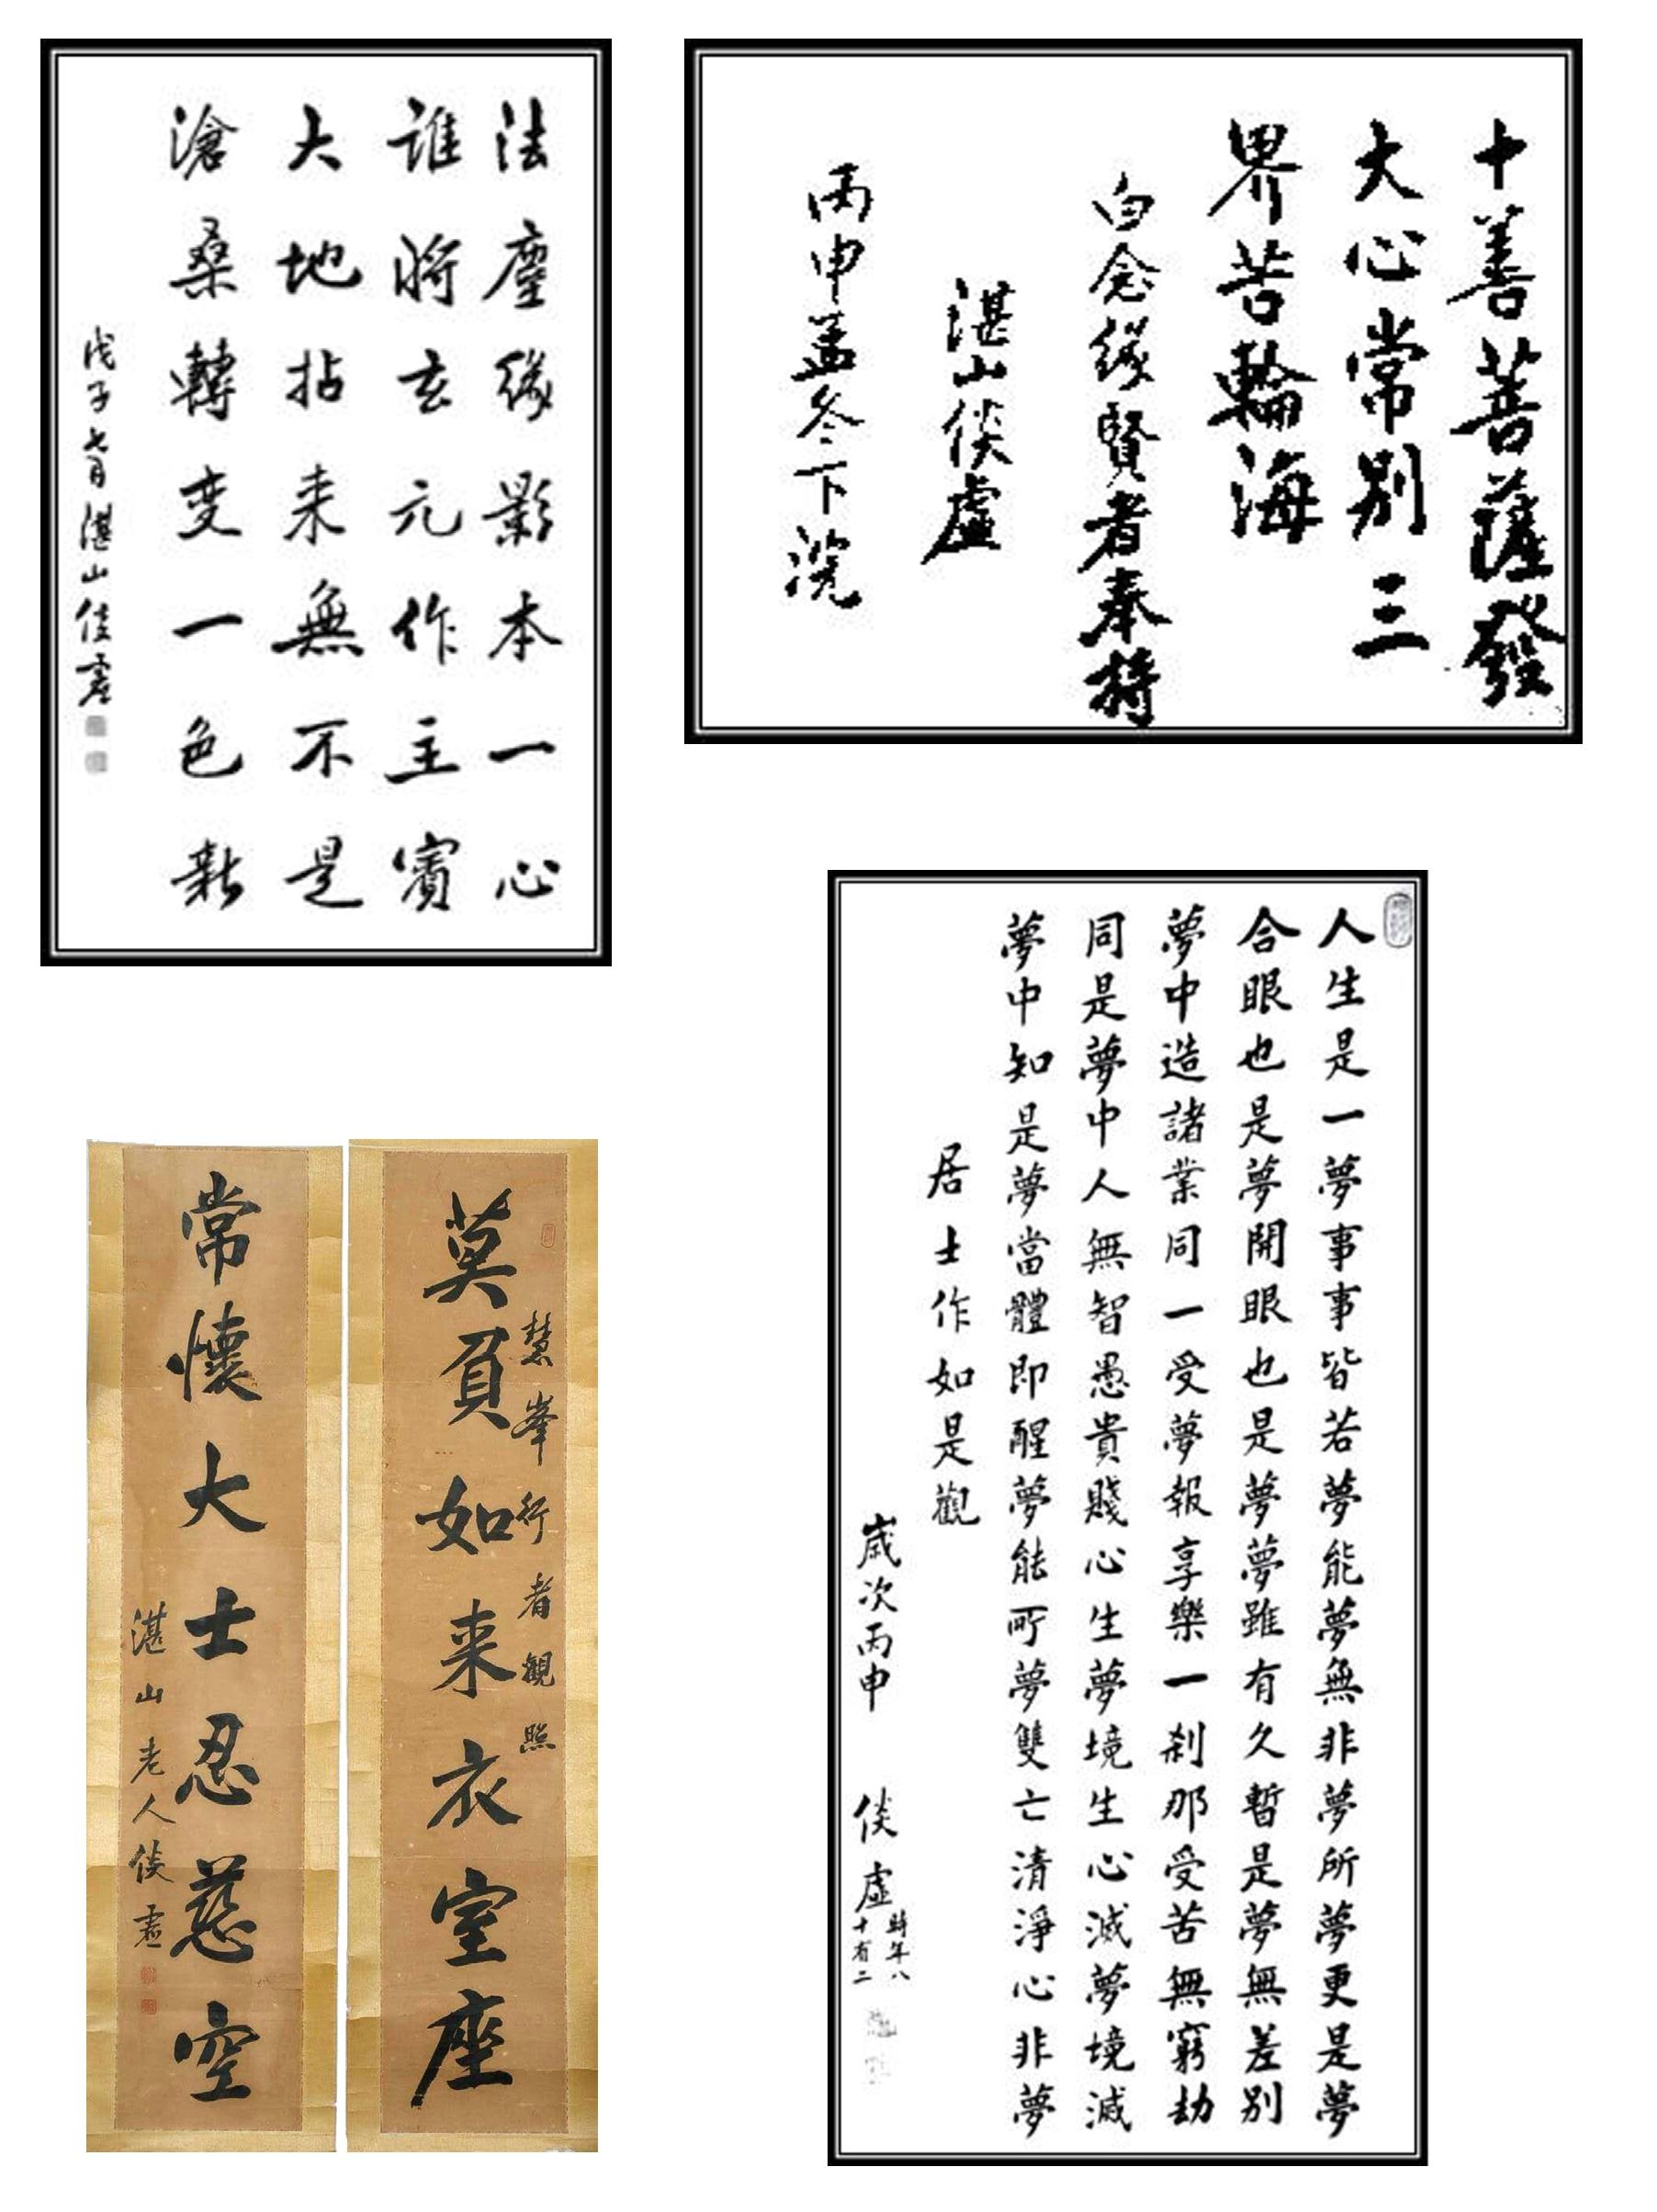 法塵緣影本一心
誰將玄元作主賓
大地拈来無不是
滄桑轉变一色新
戊子七月湛山倓虚
十善菩薩發
大心常别三
界苦輪海
白念緣賢者奉持
湛山倓虛
丙申孟冬下浣
莫負如来衣室座
慧峯行者觀照
常懷大士忍慈空
湛山老人倓虚
人生是一夢事事皆若夢能夢無非夢所夢更是夢
合眼也是夢開眼也是夢夢雖有久暫是夢無差別
夢中造諸業同一受夢報享樂一刹那受苦無窮劫
同是夢中人無智愚貴賤心生夢境生心滅夢境滅
夢中知是夢當體即醒夢能所夢雙亡清淨心非夢
居士作如是觀
歲次丙申 倓虛時年八十有二